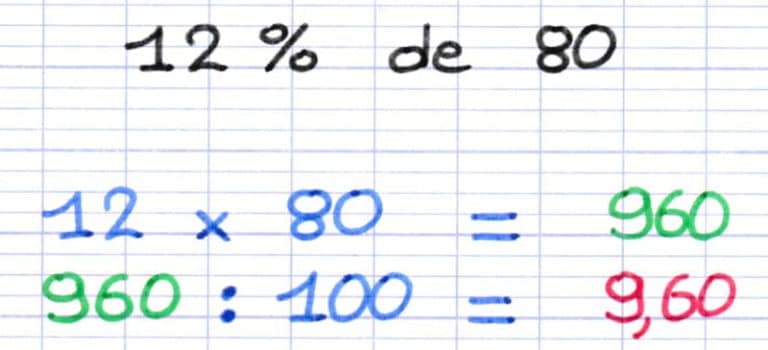 12 % de 80
12 x 80 = 960
960 : 100 = 9,60